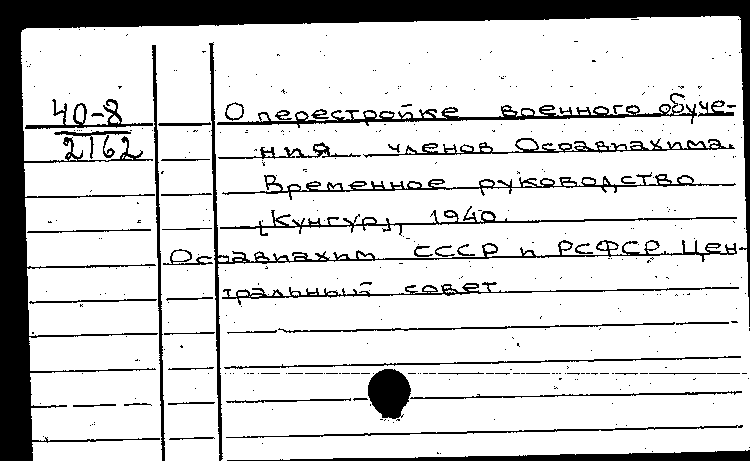 40-8
2162
О перестройке военного обуче-
ния членов Осоавиахима.
Временное руководство
[Кунгур], 1940.
Осоавиахим СССР и РСФСР. Цен-
тральный совет